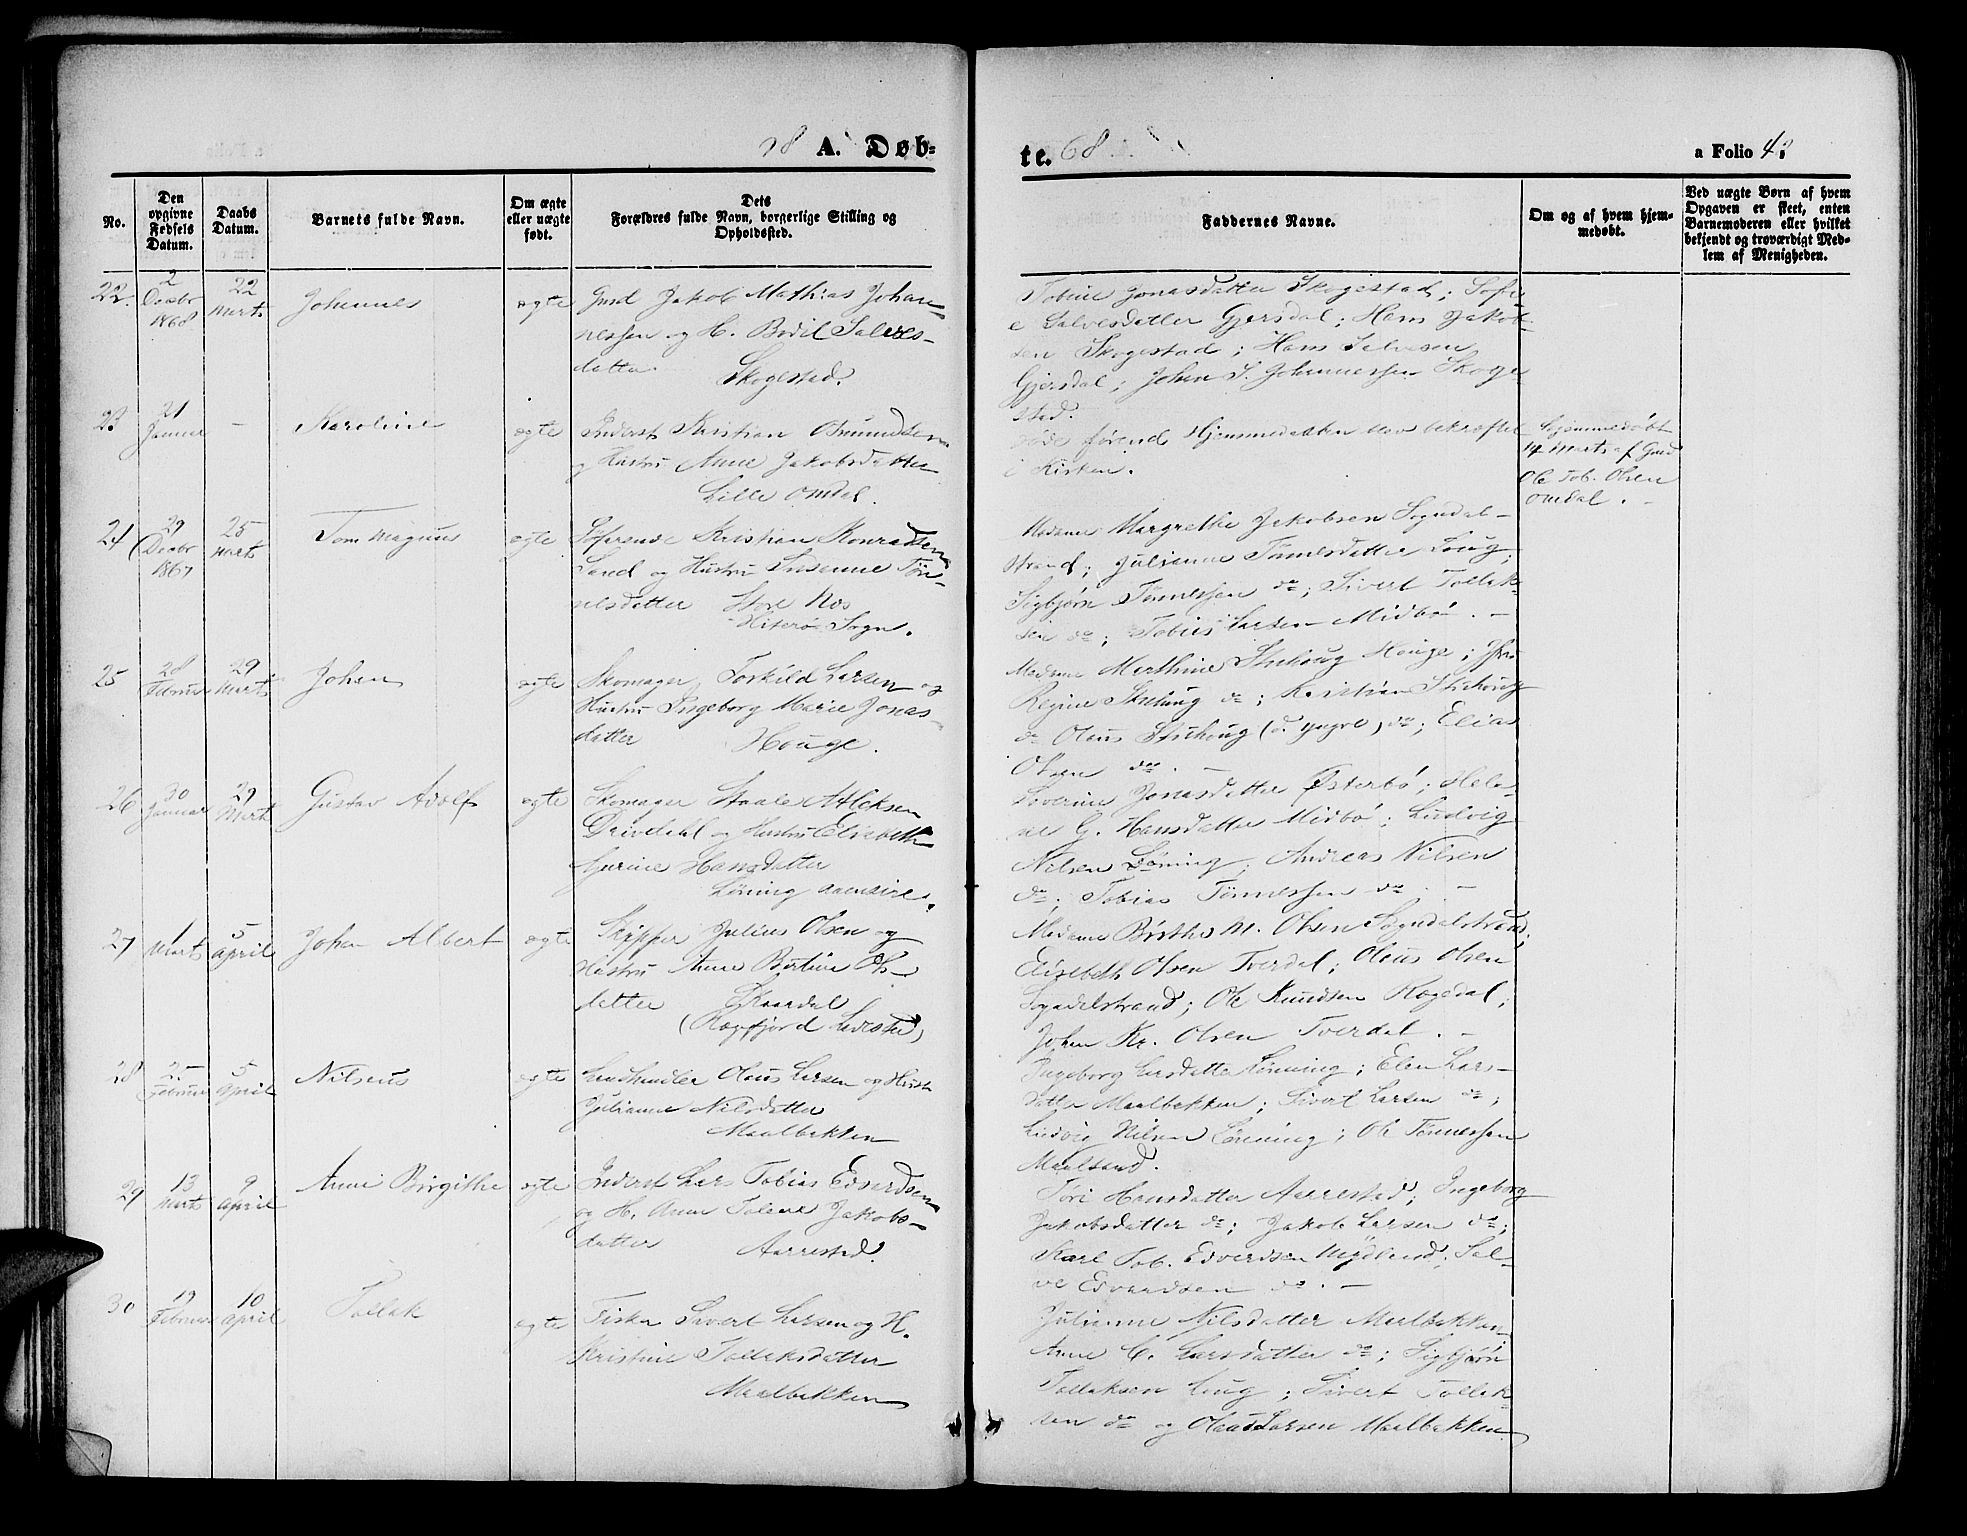 A. Døb-
te. 68
a Folio 43
No.
Den opgivne Fødsels Datum.
Daabs Datum.
Barnets fulde Navn.
Om ægte eller uægte født.
Dets Forældres fulde Navn, borgerlige Stilling og Opholdssted.
Faddernes Navne.
Om og af hvem hjemmedøbt.
Ved uægte Børn af hvem Opgaven er skeet, enten Barnemoderen eller hvilket bekjendt og troværdigt Medlem af Menigheden.
22.
2 Decbr 1868
22 Marts
Johannes
ægte
Gmd Jakob Mathias Johan-
nessen og H. Bodil Salves-
datter. Skogestad.
Tobine Jonasdatter Skogestad; Sofi-
e Salvesdatter Gjersdal; Hans Jakob-
sen Skogestad; Hans Salvesen
Gjersdal; Johan S. Johannessen Skoge-
stad.
23
21 Januar
-
Karoline
ægte
Inderst Kristian Osmundsen
og Hustru Anne Jakobsdatter
Lille Omdal.
døde førend Hjemmedaaben blev bekræftet
i Kirken.
Hjemmedøbt
14 Marts af Gmd
Ole Tob. Olsen
Omdal.
24
29 Decbr 1867
25 Marts
Tom Magnus
ægte
Loserende Kristian Konradsen
Sand og Hustru Susanne Tøn-
nesdatter Store Nes
Hiterø Sogn.
Madame Margrethe Jakobsen Sogndal-
strand; Julianne Tønnesdatter Loug;
Sigbjørn Tønnessen do; Sivert Tollak-
sen do; Tobias Larsen Midbø.
25
28 Februar
29 Marts
Johan
ægte
Skomager Torkild Larsen og
Hustru Ingeborg Marie Jonas-
datter Houge.
Madame Marthine Stuhoug Houge;
Regine Stuhoug do; Kristian Stuhoug
do Olaus Stuhoug (d. yngre) do; Elias
Olsen do.
26
30 Januar
29 Marts
Gustav Adolf
ægte
Skomager Staale Atleksen
Drivdahl og Hustru Elisabeth
Gurine Hansdatter
Løning Aaensire.
Severine Jonasdatter Østerbø; Hele-
ne G. Hansdatter Midbø; Ludvig
Nilsen Løning; Andreas Nilsen
do; Tobias Tønnessen do.
27
1 Marts
5 April
Johan Albert
ægte
Skipper Julius Olsen og
Hustru Anne Bertine Ols-
datter Skaardal
(Rægefjord Ladested)
Madame Berthe M. Olsen Sogndalstrand,
Elisebeth Olsen Tverdal; Olaus Olsen
Sogndalstrand; Ole Knudsen Rægedal;
Johan Kr. Olsen Tverdal.
28
25 Februar
5 April
Nilseus
ægte
Landhandler Olaus Larsen og Hustr
Julianne Nilsdatter
Maalbakken
Ingeborg Larsdatter Lønning; Elen Lars-
datter Maalbakken; Sivert Larsen do;
Ludvig Nilsen Lønning; Ole Tønnessen
Maalsand.
29
13 Marts
9 April
Anne Birgithe
ægte
Inderst Lars Tobias Edvardsen
og H. Anne Tolene Jakobs-
datter Aarrestad.
Tori Hansdatter Aarrestad; Ingeborg
Jakobsdatter do; Jakob Larsen do;
Karl Tob. Edvardsen Mydland; Sal-
ve Edvardsen do.
30
19 Februar
10 April
Tollak
ægte
Fisker Sivert Larsen og H.
Kristine Tollaksdatter
Maalbakken
Julianne Nilsdatter Maalbakken,
Anne C. Larsdatter do; Sigbjørn
Tollaksen Loug; Sivert Tollak-
sen do og Olaus Larsen Maalbakken